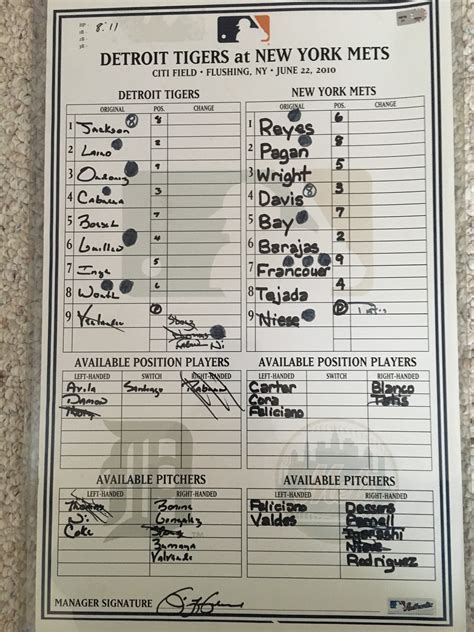 8:11
DETROIT TIGERS at NEW YORK METS
CITI FIELD • FLUSHING, NY • JUNE 22, 2010
DETROIT TIGERS
ORIGINAL POS. CHANGE
1 Jackson 8
2 Laird
3 Ordonez 9
4 Cabrera 3
5 Boesch
6 Guillen
7 Inge
8 Worth 6
9 Verlander
Thomas
Ni
NEW YORK METS
ORIGINAL POS. CHANGE
1 Reyes 6
2 Pagan 8
3 Wright 5
4 Davis 3
5 Bay 7
6 Barajas 2
7 Francouer 9
8 Tejada 4
9 Niese Tatis
AVAILABLE POSITION PLAYERS
LEFT-HANDED SWITCH RIGHT-HANDED
Avila Santiago
Damon
AVAILABLE POSITION PLAYERS
LEFT-HANDED SWITCH RIGHT-HANDED
Carter Blanco
Cora Tatis
Feliciano
AVAILABLE PITCHERS
LEFT-HANDED RIGHT-HANDED
Thomas Bonine
Ni Gonzalez
Coke
Zumaya
Valverde
AVAILABLE PITCHERS
LEFT-HANDED RIGHT-HANDED
Feliciano Dessens
Valdes Parnell
Igarashi
Niese
Rodriguez
MANAGER SIGNATURE
Authentic